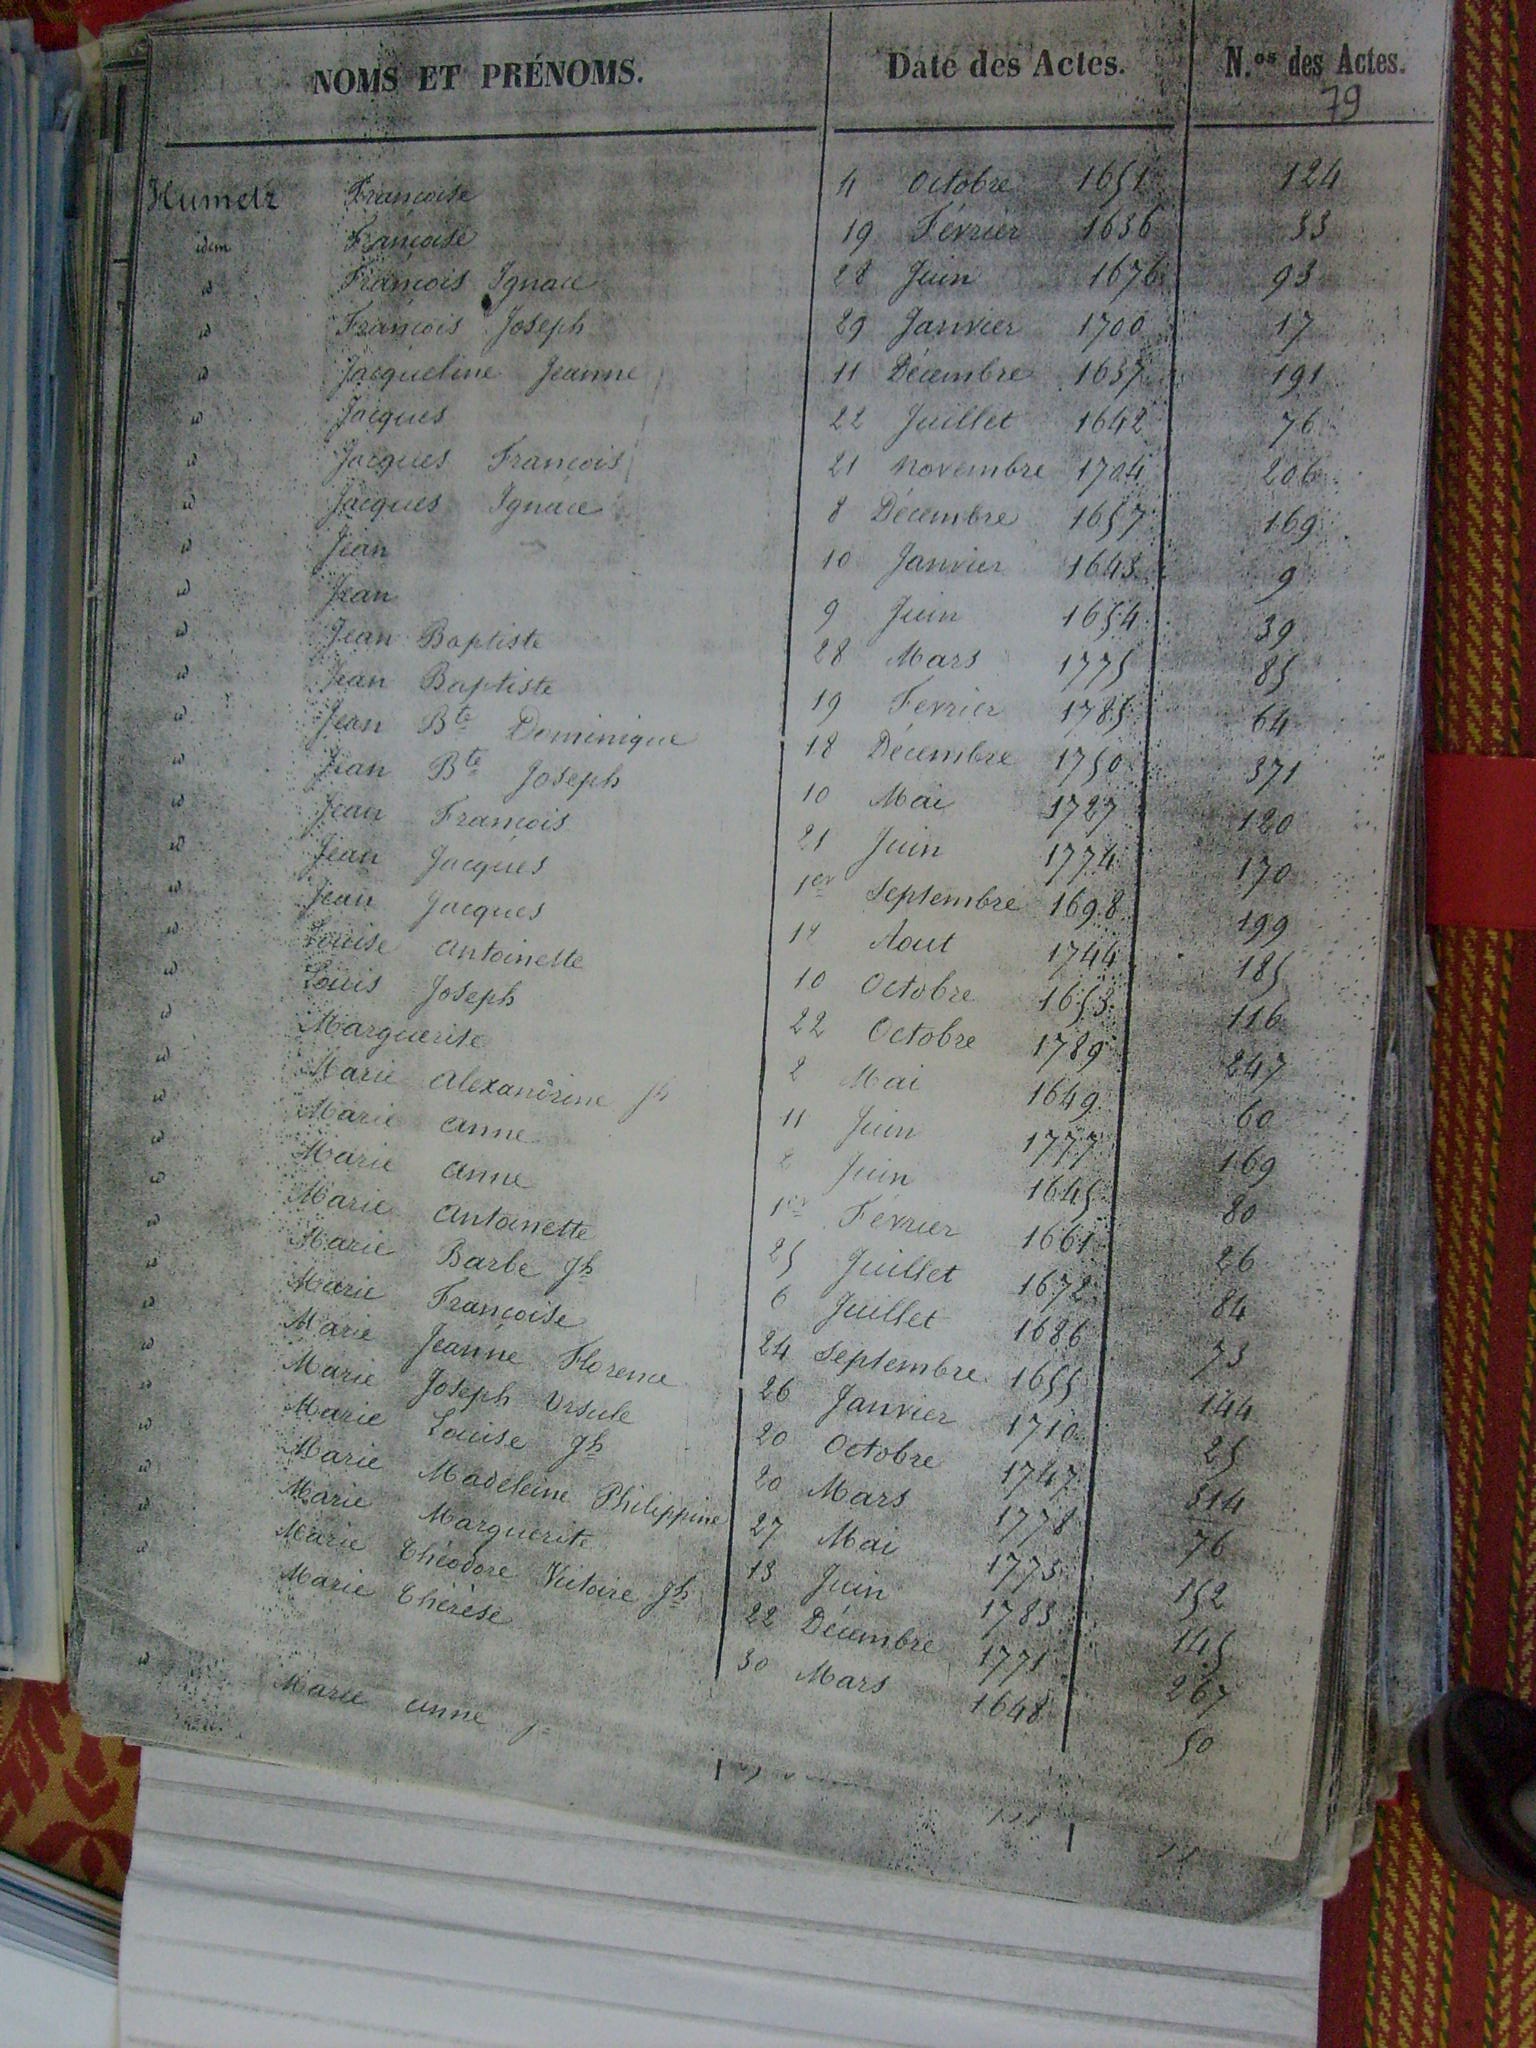 NOMS ET PRÉNOMS. Date des Actes. N.os des Actes.
79
Humetz Françoise 4 Octobre 1651 124
idem Françoise 19 Février 1636 33
id François Ignace 28 Juin 1676 93
id François Joseph 29 Janvier 1700 17
id Jacqueline Jeanne 11 Décembre 1637 191
id Jacques 22 Juillet 1642 76
id Jacques François 21 Novembre 1704 206
id Jacques Ignace 8 Décembre 1657 169
id Jean 10 Janvier 1643 9
id Jean 9 Juin 1654 39
id Jean Baptiste 28 Mars 1775 85
id Jean Baptiste 19 Fevrier 1785 64
id Jean Bte Dominique 18 Décembre 1750 371
id Jean Bte Joseph 10 Mai 1727 120
id Jean François 21 Juin 1774 170
id Jean Jacques 1er Septembre 1698 199
id Jean Jacques Aout 1744 185
id Louise Antoinette 10 Octobre 1653 116
id Louis Joseph 22 Octobre 1789 247
id Marguerite 2 Mai 1649 60
id Marie Alexandrine Jh 11 Juin 1777 169
id Marie Anne 2 Juin 1645 80
id Marie Anne 1er Février 1661 26
id Marie Antoinette 25 Juillet 1672 84
id Marie Barbe Jh 6 Juillet 1686 73
id Marie Françoise 24 Septembre 1655 144
id Marie Jeanne Florence 26 Janvier 1710 25
id Marie Joseph Ursule 20 Octobre 1747 314
id Marie Louise Jh 20 Mars 1778 76
id Marie Madeleine Philippine 27 Mai 1775 152
id Marie Marguerite 13 Juin 1783 145
id Marie Théodore Victoire Jh 22 Décembre 1771 267
id Marie Thérèse 30 Mars 1648 50
id Marie Anne